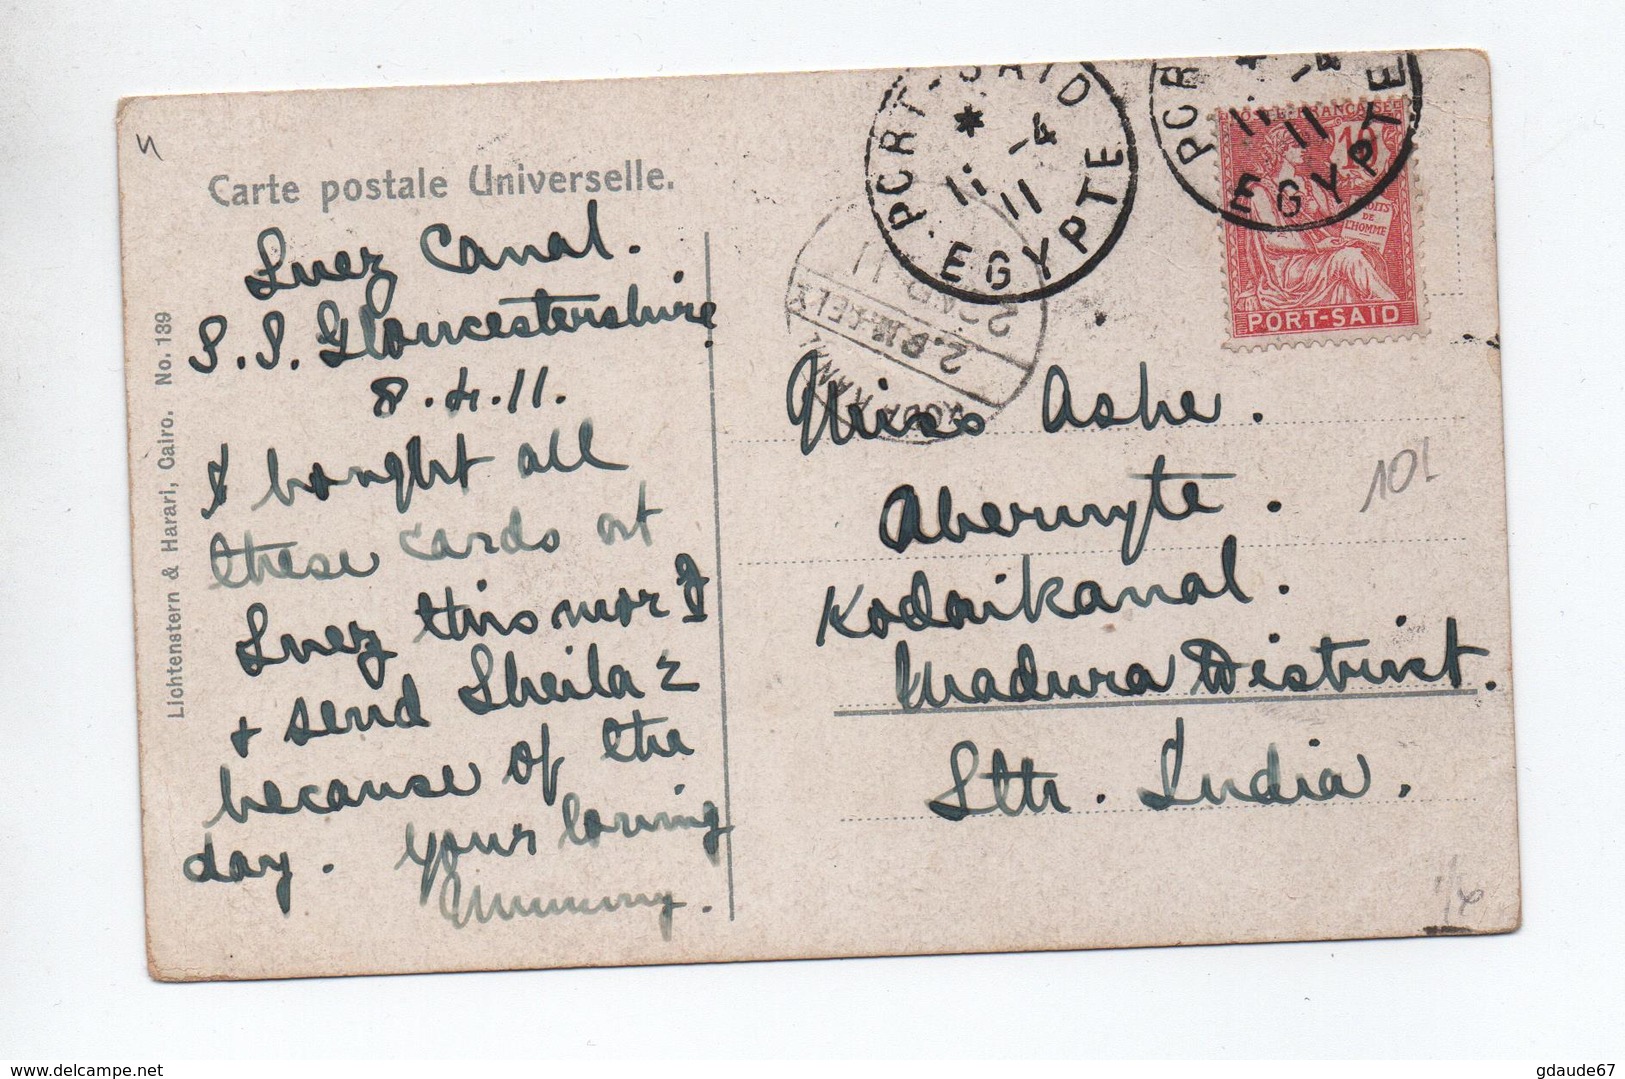 Carte postale Universelle.
Suez Canal.
S.S. Gloucestershire
8.4.11.
I bought all
these cards at
Suez this mor g
& send Sheila 2
because of the
day. Your loving
Mummy.
Lichtenstern & Harari, Cairo. No. 139
PORT-SAID
* 11 -4
11
EGYPTE
PORT
11 -4
11
EGYPTE
POSTE FRANÇAISE
10
DROITS
DE
L'HOMME
PORT-SAID
KODAIKANAL
2. P.M. DELY
22 11
Miss Ashe.
Abernyte.
Kodaikanal.
Madura District.
Sth. India.
10L
gdaude67